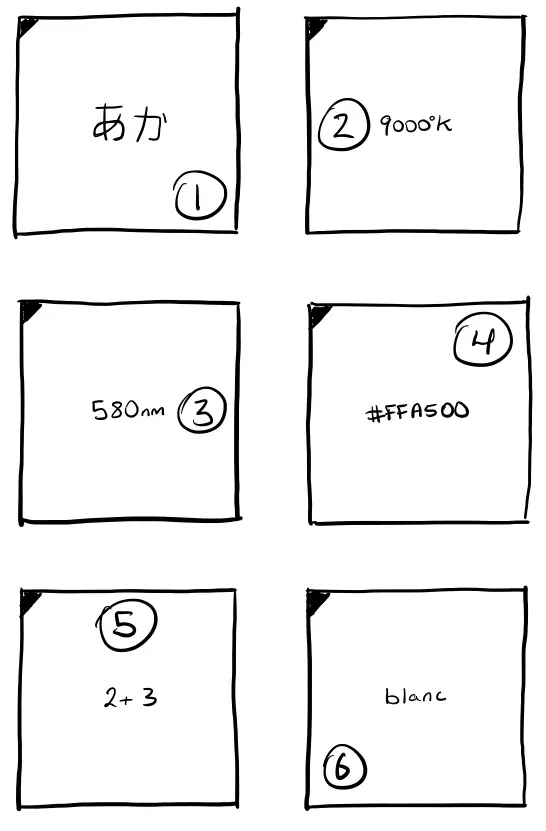 あか
1
2 9000°K
580nm 3
4
#FFA500
5
2+3
blanc
6